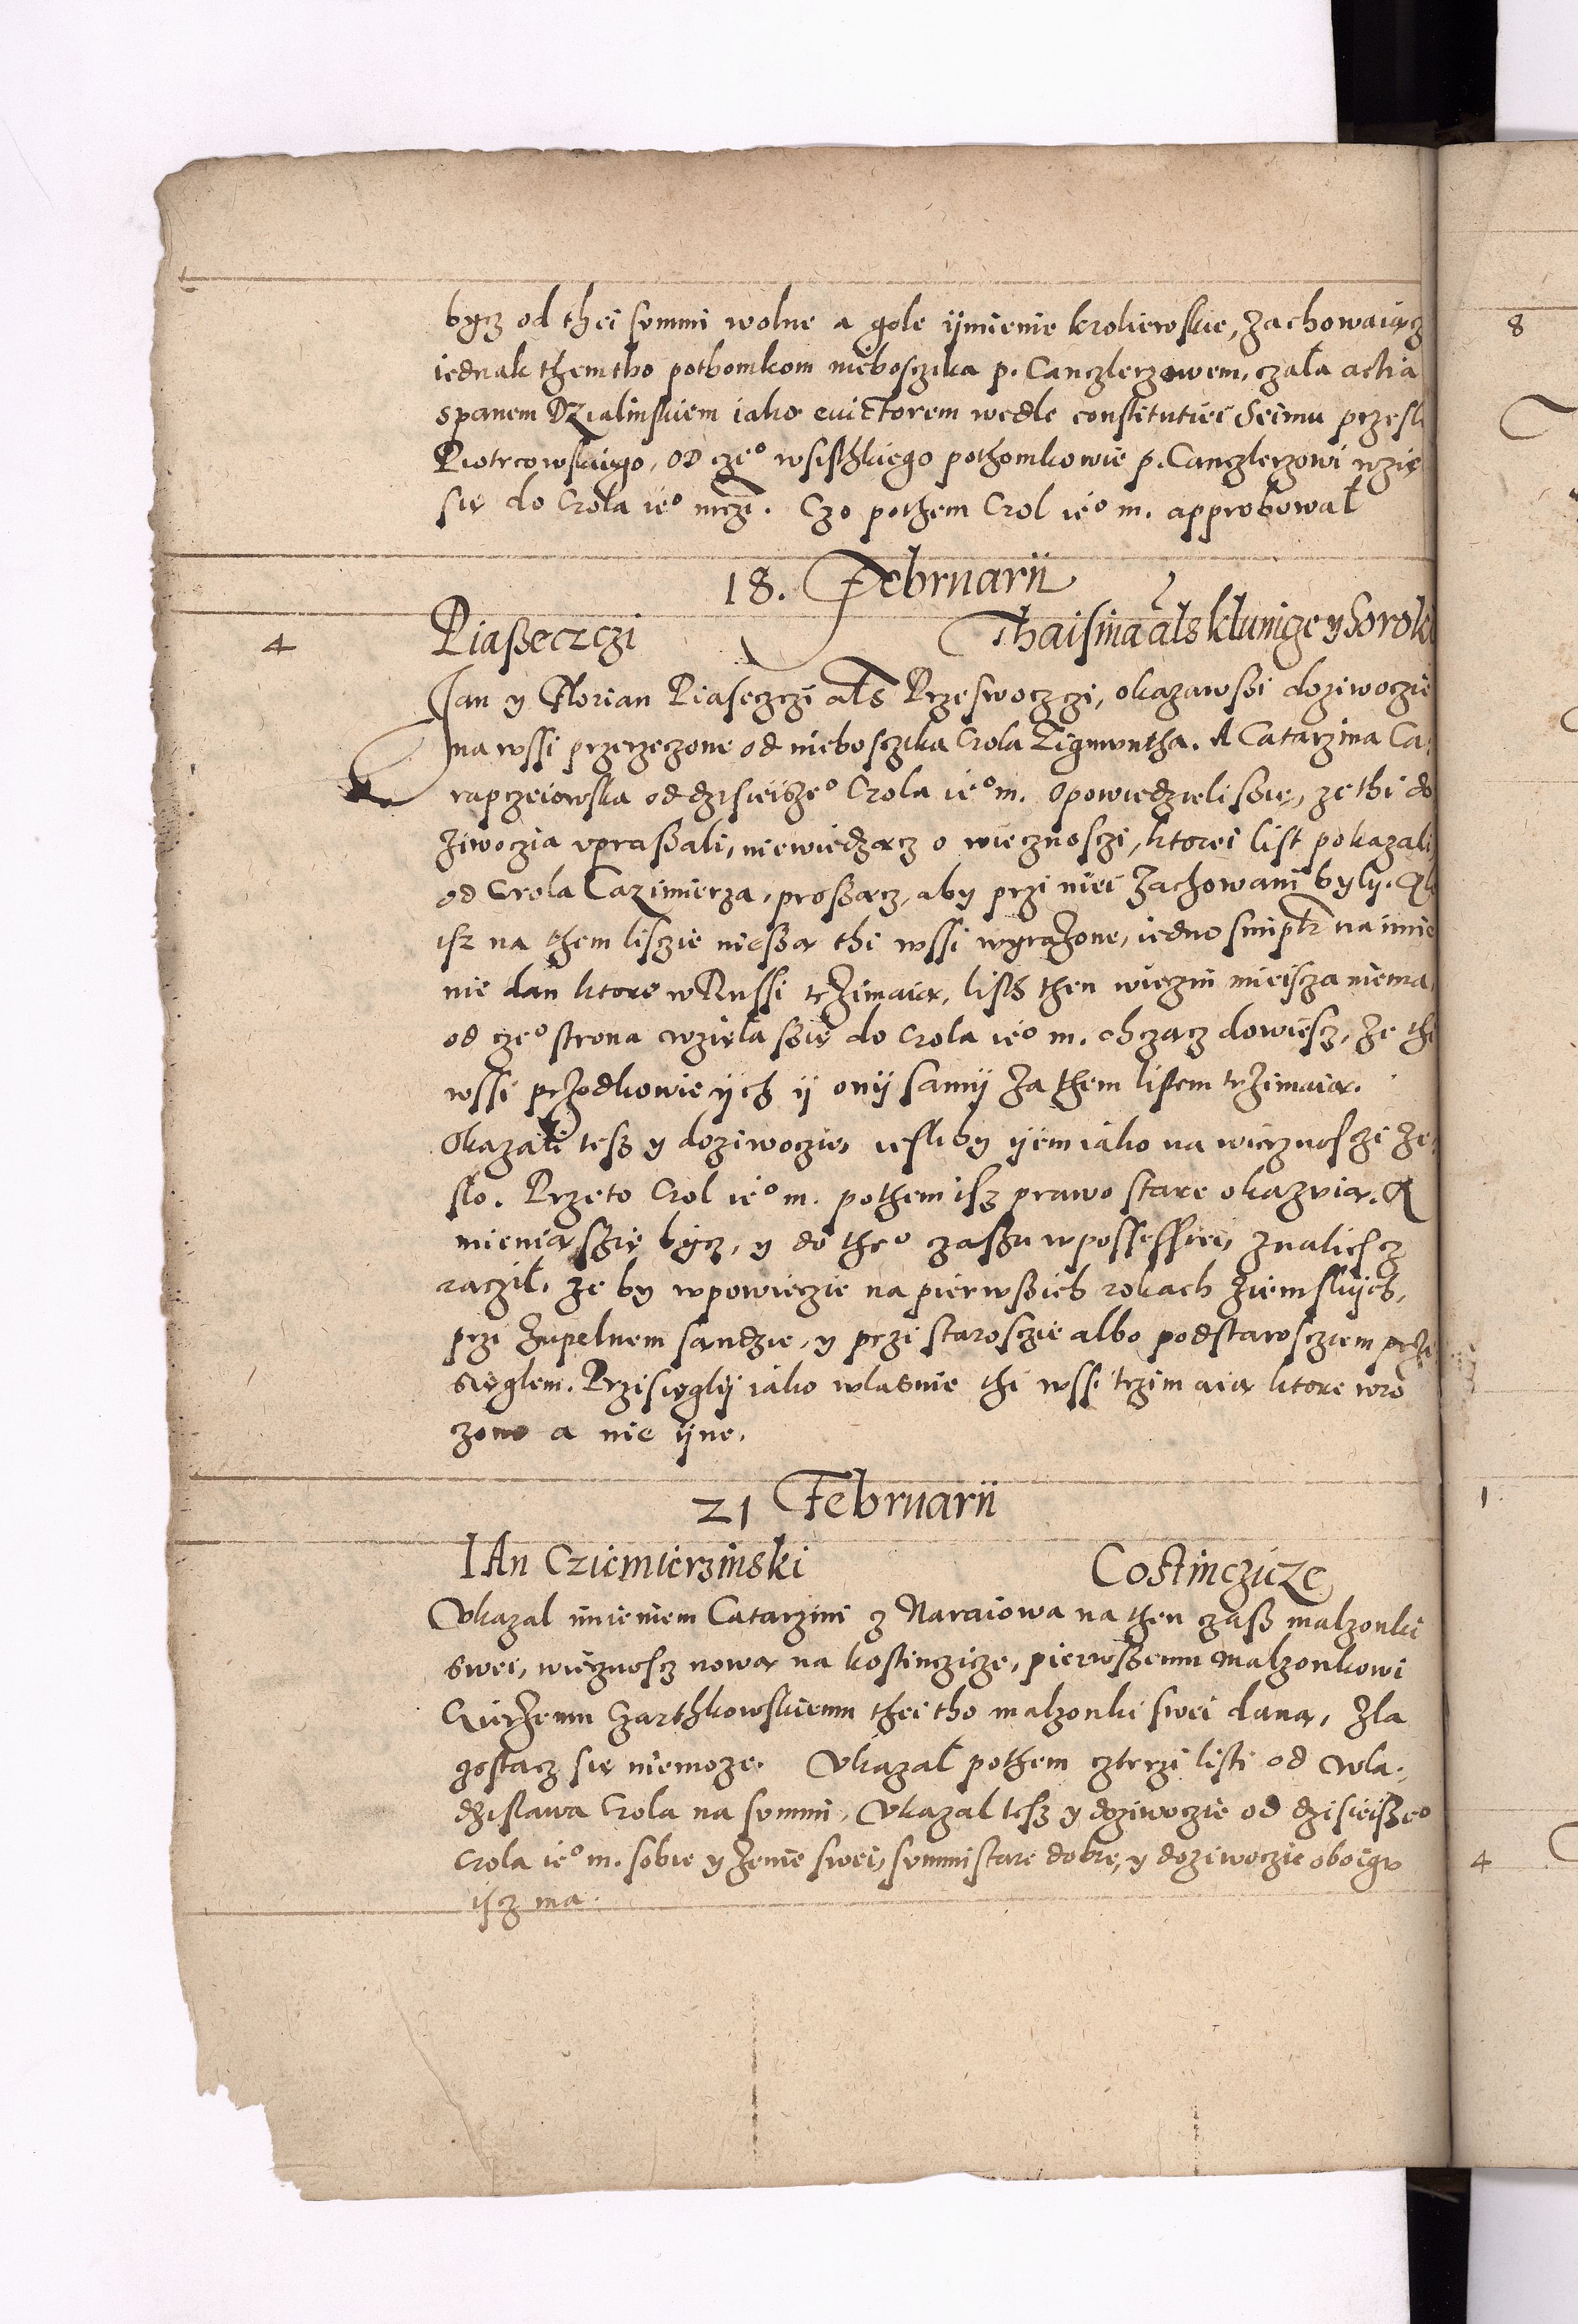 bycz od thei summi wolne a gole ijmienie krolewskie, zachowaiącz
iednak themtho pothomkom niebosczika p. Canczlerzowem, czała actia
spanem Dzialinskiem iako euictorem wedle constitutiei Seimu przesl
Piotrcowskiego, od cze° wsisthkiego pothomkowie p. Canczlerzowi wzię
się do Crola ie° mczi. Czo pothem Crol ie° m. approbował
18. Februarii
4 Piaßeczczi Thaisina als klunige y Soroki
Jan y Florian Piaseczczi als Przeswoczczi, okazawssi doziwoczie
na wssi przerzeczone od niebosczika Crola Zigmuntha. A Catarzina Ca
rapczeiowska od dzisieisze° Crola ie° m. Opowiedzieli ssię, ze thi do
ziwoczia vprassali, niewiedzącz o wiecznosczi, ktorei list pokazali,
od Crola Cazimierza, proszącz, aby przi niei zachowani byly.
isz na them lisczie nießą thi wssi wyrazone, iedno simplr na imie
nie dan ktore w Russi trzimaią, listh then wieczni mieiscza niema,
od cze° strona wzięła ssię do Crola ie° m. chczącz dowiesz, ze thi
wssi przodkowie ijch ij onij samij za them listem trzimaią.
Okazali tesz y doziwoczie, iesliby ijem iako na wiecznosczi ze
sło. Przeto Crol ie° m. pothem isz prawo stare okazuią. A
mienią sszię bycz, y do the° czassu w possessiei, znaliescz
racził, ze by w powieczie na pierwssich rokach ziemskijch,
przi zupelnem sandzie, y przi starosczie albo podstaroscziem prze
sięglem. Przisięglij iako wlasnie thi wssi trzimaią ktore wro
czono a nie ijne.
21 Februarii
IAn Cziemierzinski Costinczicze
Vkazal imieniem Catarzini z Naraiowa na then czass malzonki
swei, wiecznoscz nową na kostinczicze, pierwssemu malzonkowi
Gierzemu Czarthkowskiemu thei tho malzonki swei daną, Zla
zostacz się niemoze. Vkazał pothem czterzi listi od Wla
dzislawa Crola na summi, Vkazal tesz y doziwoczie od dzisieisze°
Crola ie° m. sobie y zenie swei, summi stare dobre, y doziwoczie oboigu
iscz ma.
8
1
4